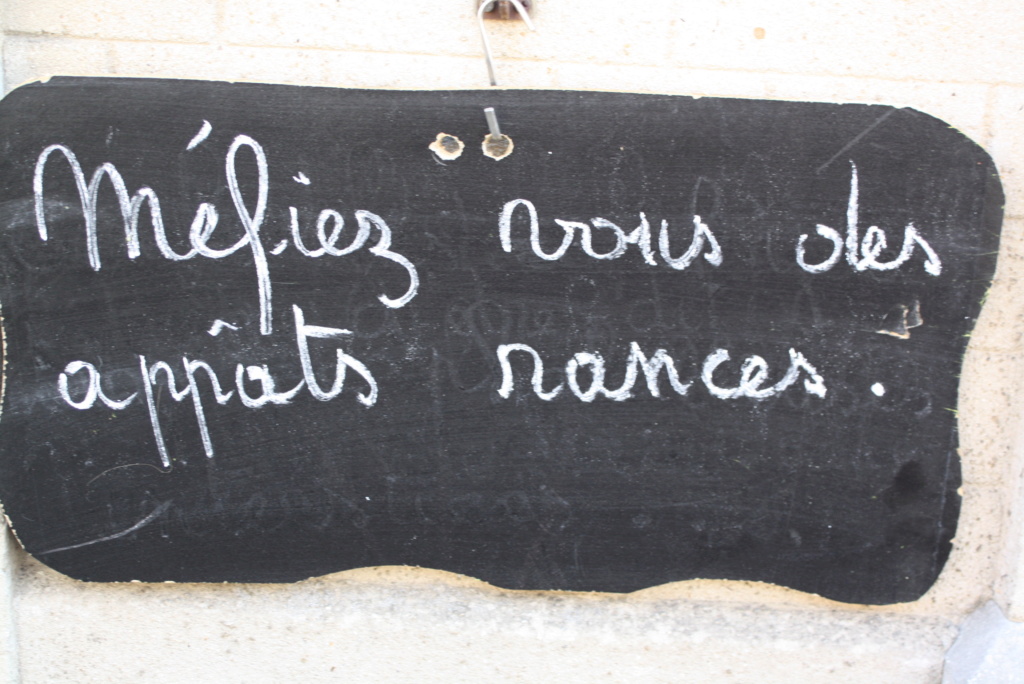 Méfiez vous des
appâts rances.